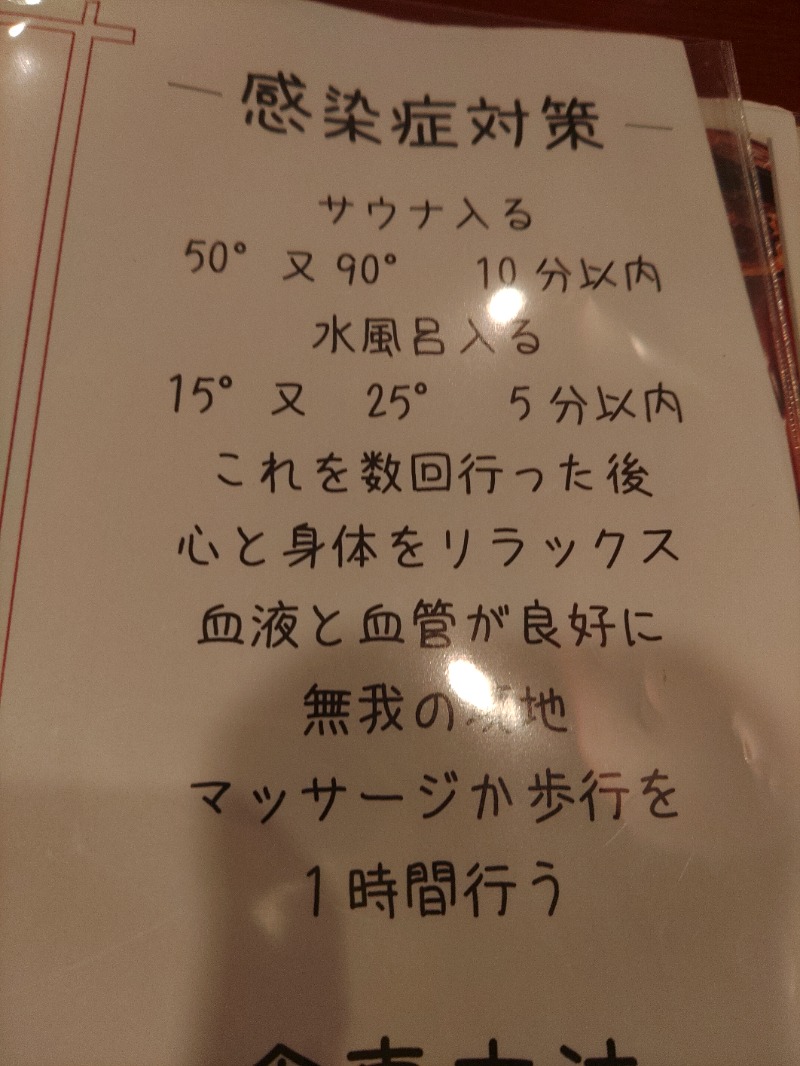 感染症対策
サウナ入る
50° 又 90° 10分以内
水風呂入る
15° 又 25° 5分以内
これを数回行った後
心と身体をリラックス
血液と血管が良好に
無我の境地
マッサージか歩行を
1時間行う